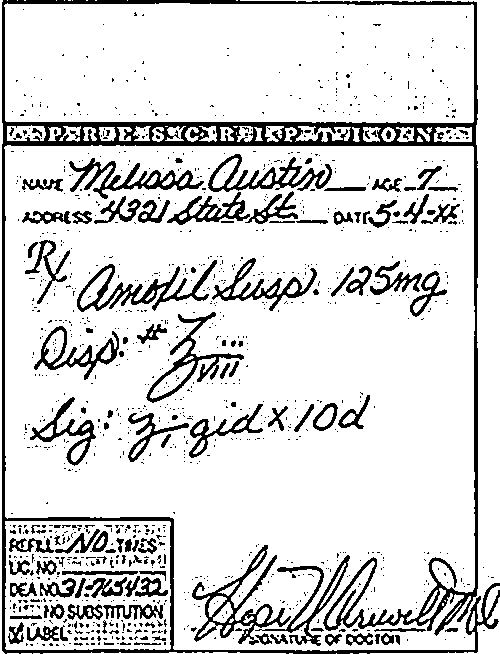 PRESCRIPTION
NAME Melissa Austin AGE 7
ADDRESS 4321 State St. DATE 5-4-XX
Rx Amoxil Susp. 125mg
Disp: # ℥ viii
Sig: ʒ i qid x 10d
REFILL NO TIMES
LIC. NO.
DEA NO. 31-765432
NO SUBSTITUTION
LABEL
M.D.
SIGNATURE OF DOCTOR